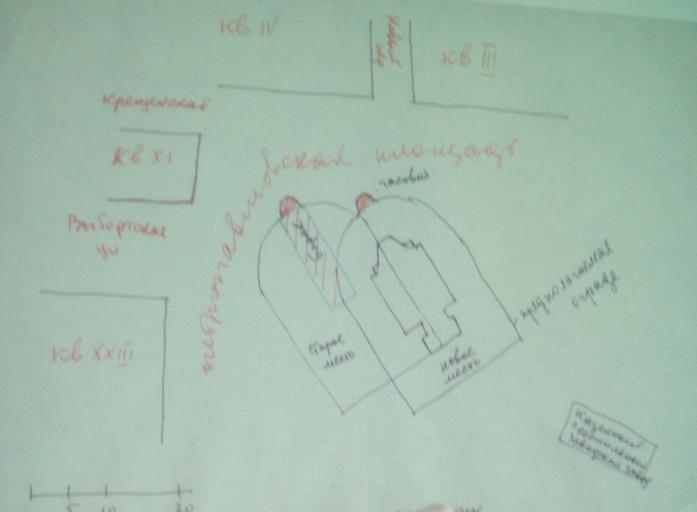 кв IV
кв III
Крещенская
кв XI
Петропавловская площадь
часовня
Выборгская
ул.
предполагаемая
ограда
кв XXIII
старое
место
новое
место
Казенный
5
10
20